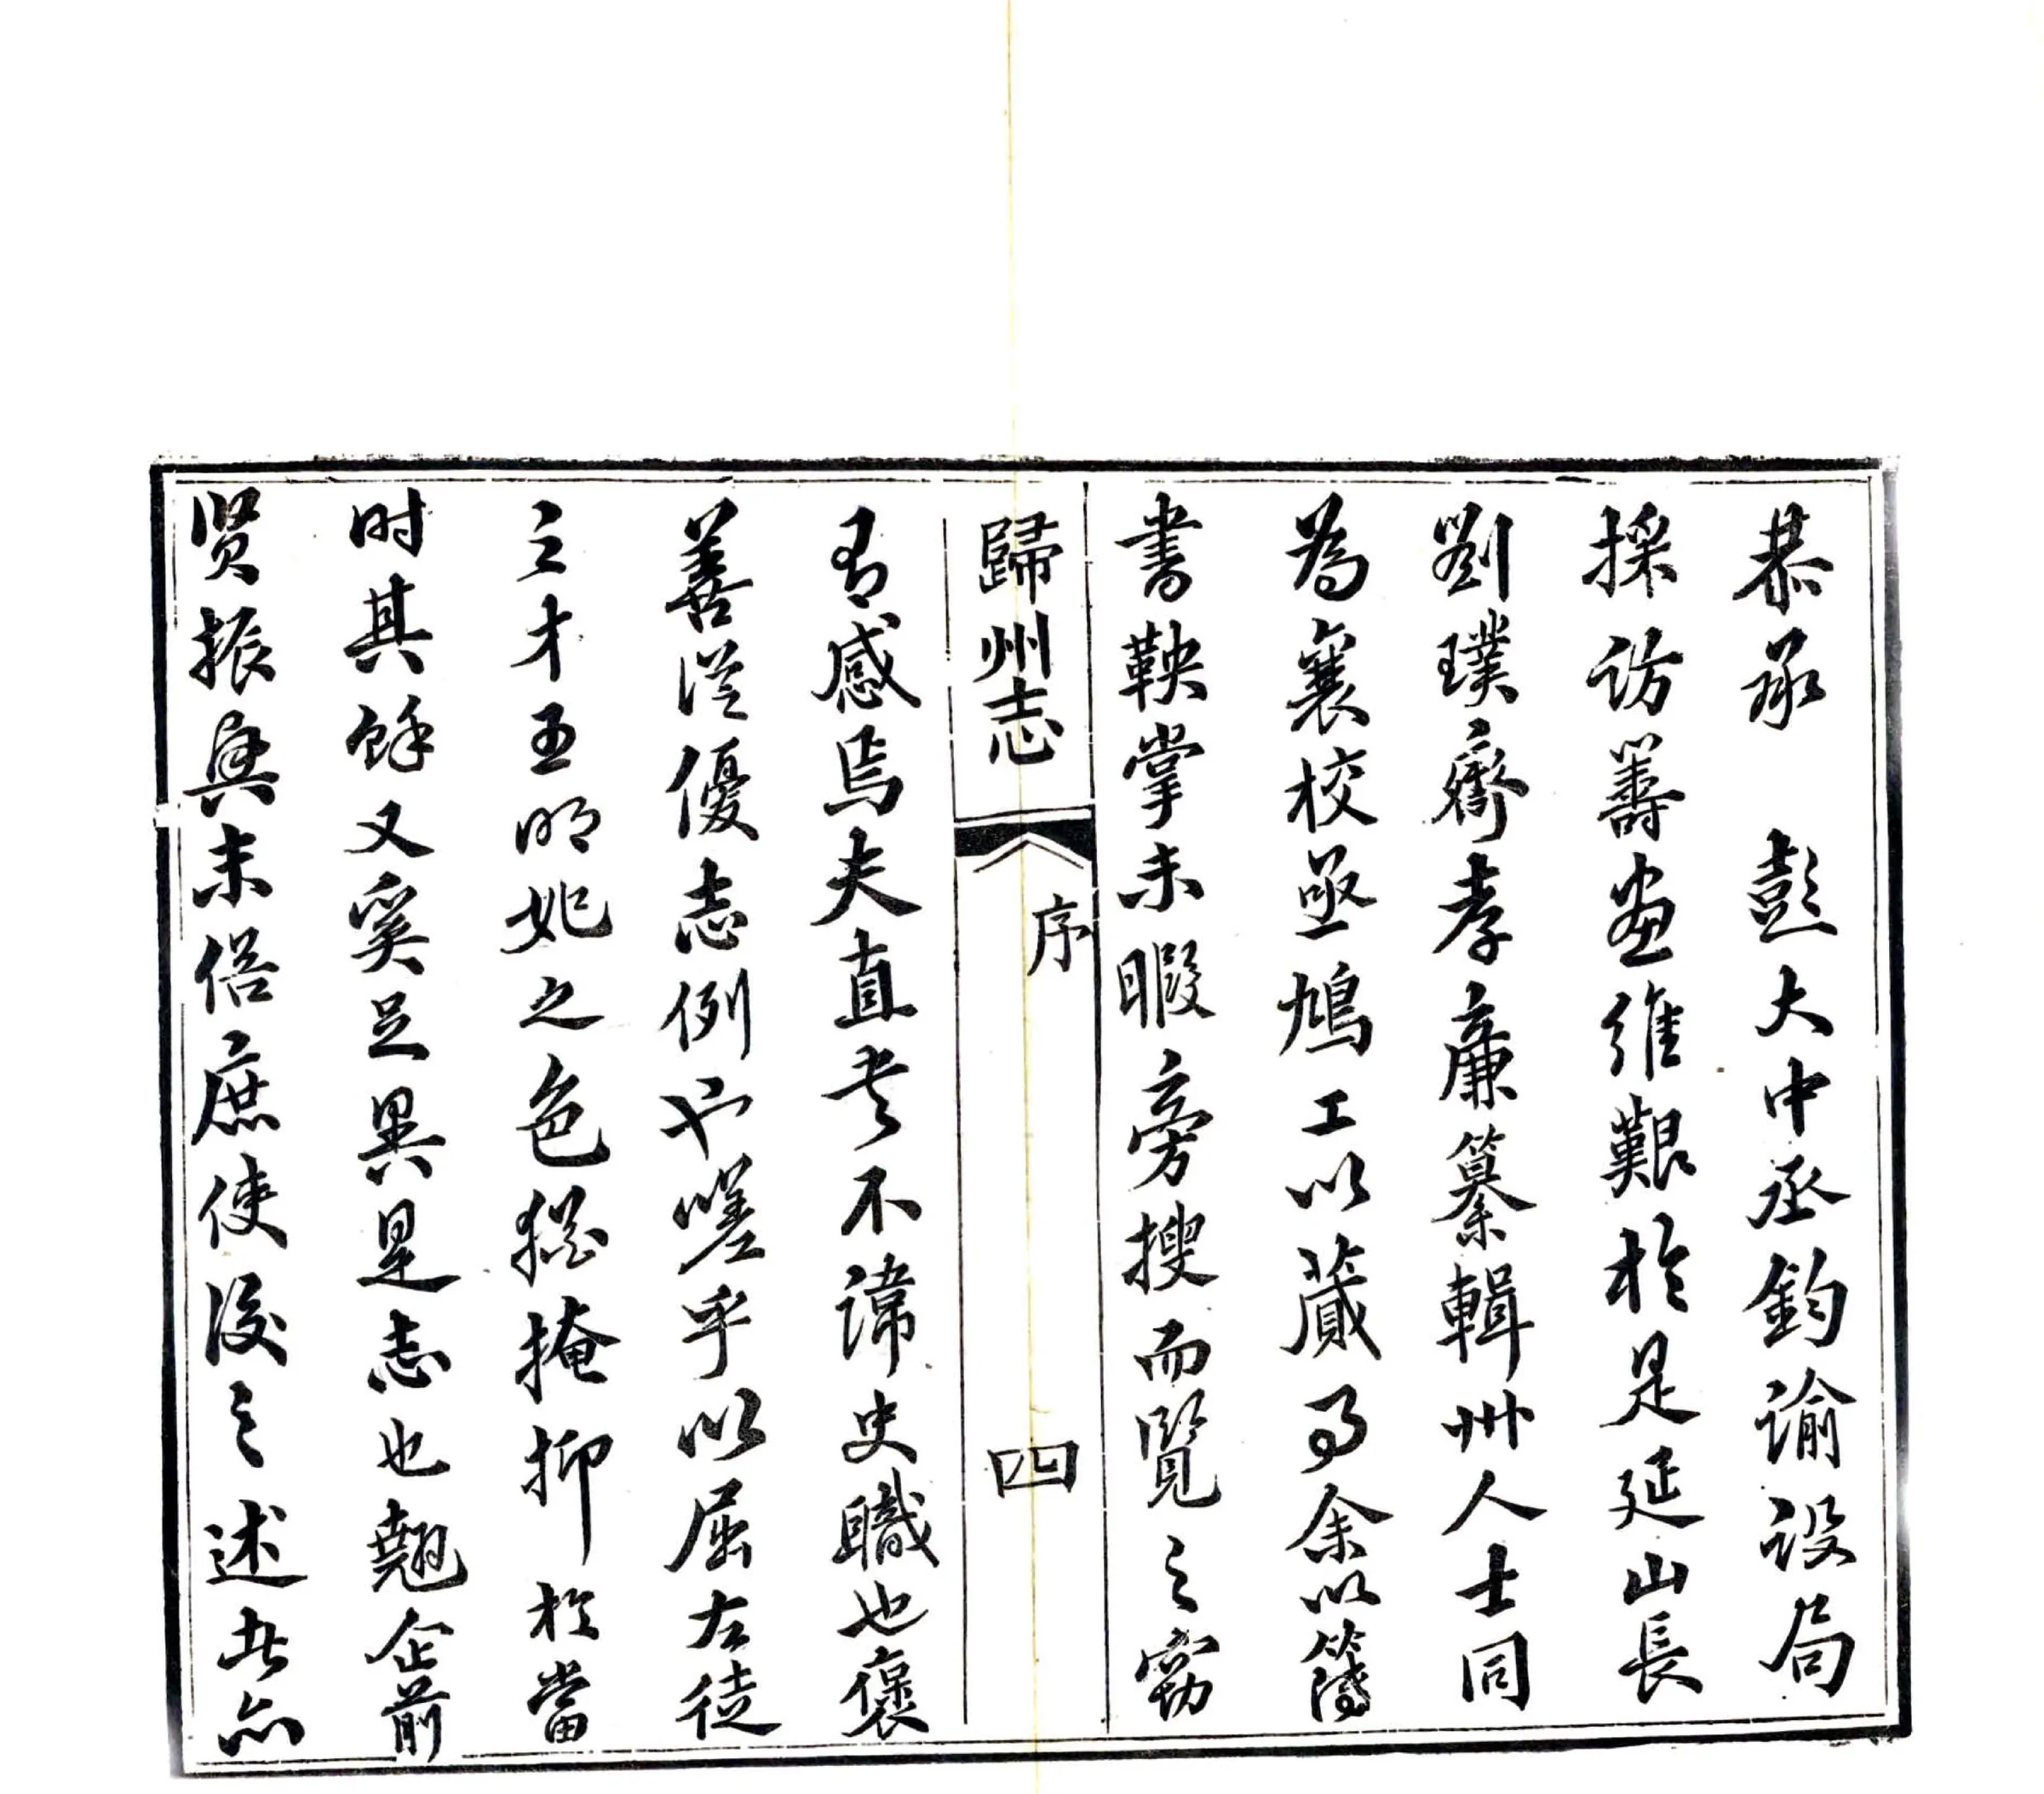 恭承　彭大中丞鈞諭設局
採訪籌畫維艱於是延山長
劉璞齋孝廉纂輯州人士同
為襄校亟鳩工以蕆事余以簿
書鞅掌未暇旁搜而覽之竊
歸州志
序
四
有感焉夫直書不諱史職也褒
善從優志例也嗟乎以屈左徒
之才王明妃之色猶掩抑於當
时其餘又奚足異是志也翹企前
贤振興末俗庶使後之述此亦